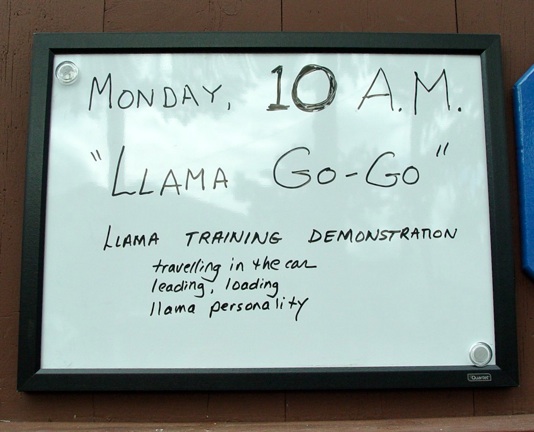 MONDAY, 10 A.M.
"LLAMA GO-GO"
LLAMA TRAINING DEMONSTRATION
travelling in the car
leading, loading
llama personality
Quartet